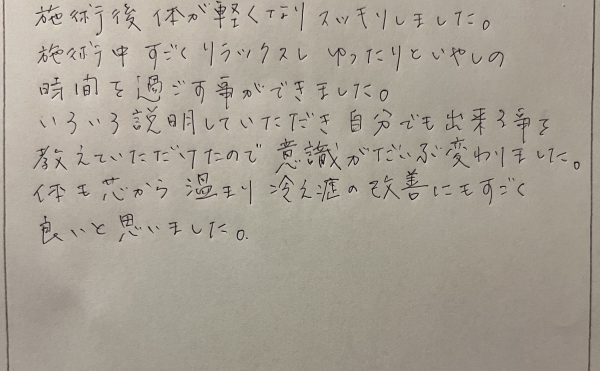 施術後 体が軽くなり スッキリしました。
施術中 すごく リラックスし ゆったりといやしの
時間を過ごす事ができました。
いろいろ説明していただき 自分でも出来る事を
教えていただけたので 意識がだいぶ変わりました。
体も芯から 温まり 冷え症の改善にもすごく
良いと思いました。